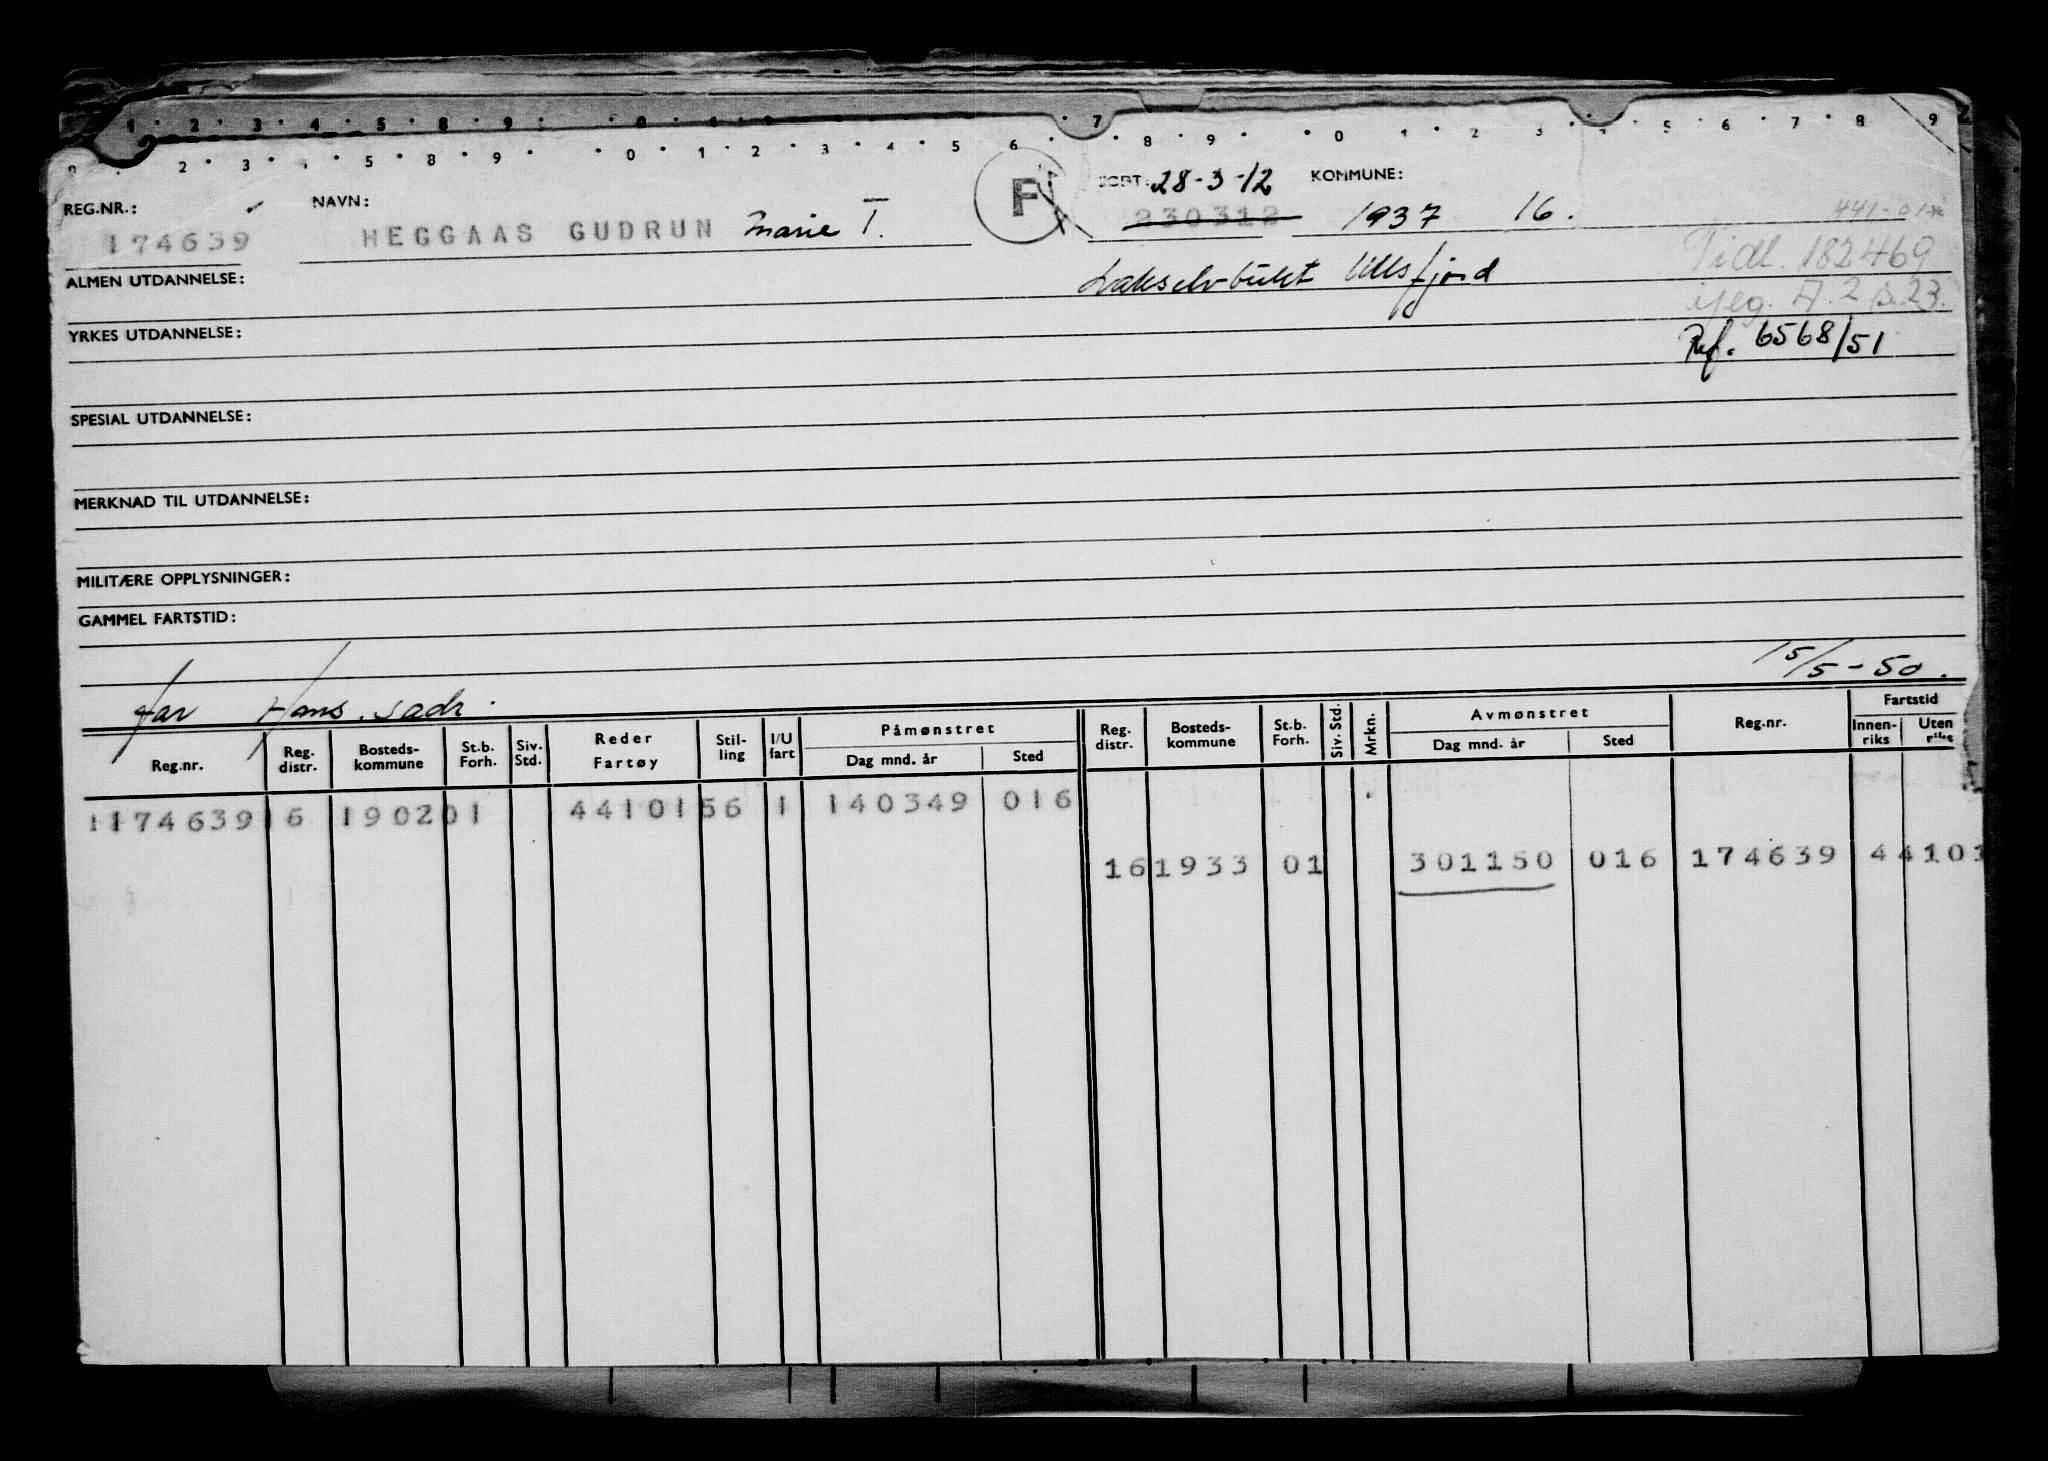 REG.NR.: NAVN: F FØDT: 28-3-12 KOMMUNE:
174639 HEGGAAS GUDRUN Marie T. 230312 1937 16.
ALMEN UTDANNELSE: Lakselvbukt Ullsfjord Tidl. 182469
A.2 S.23.
YRKES UTDANNELSE: Ref. 6568/51
SPESIAL UTDANNELSE:
MERKNAD TIL UTDANNELSE:
MILITÆRE OPPLYSNINGER:
GAMMEL FARTSTID:
15/5-50.
far Hans. sadr.
Reg.nr. Reg. distr. Bosteds-kommune St.b. Forh. Siv. Std. Reder Fartøy Stil-ling I/U fart Påmønstret Dag mnd. år Sted Reg. distr. Bosteds-kommune St.b. Forh. Siv. Std. Mrkn. Avmønstret Dag mnd. år Sted Reg.nr. Fartstid Innen-riks Uten riks
1174639 16 1902 01 44101 56 1 140349 016
16 1933 01 301150 016 174639 44101